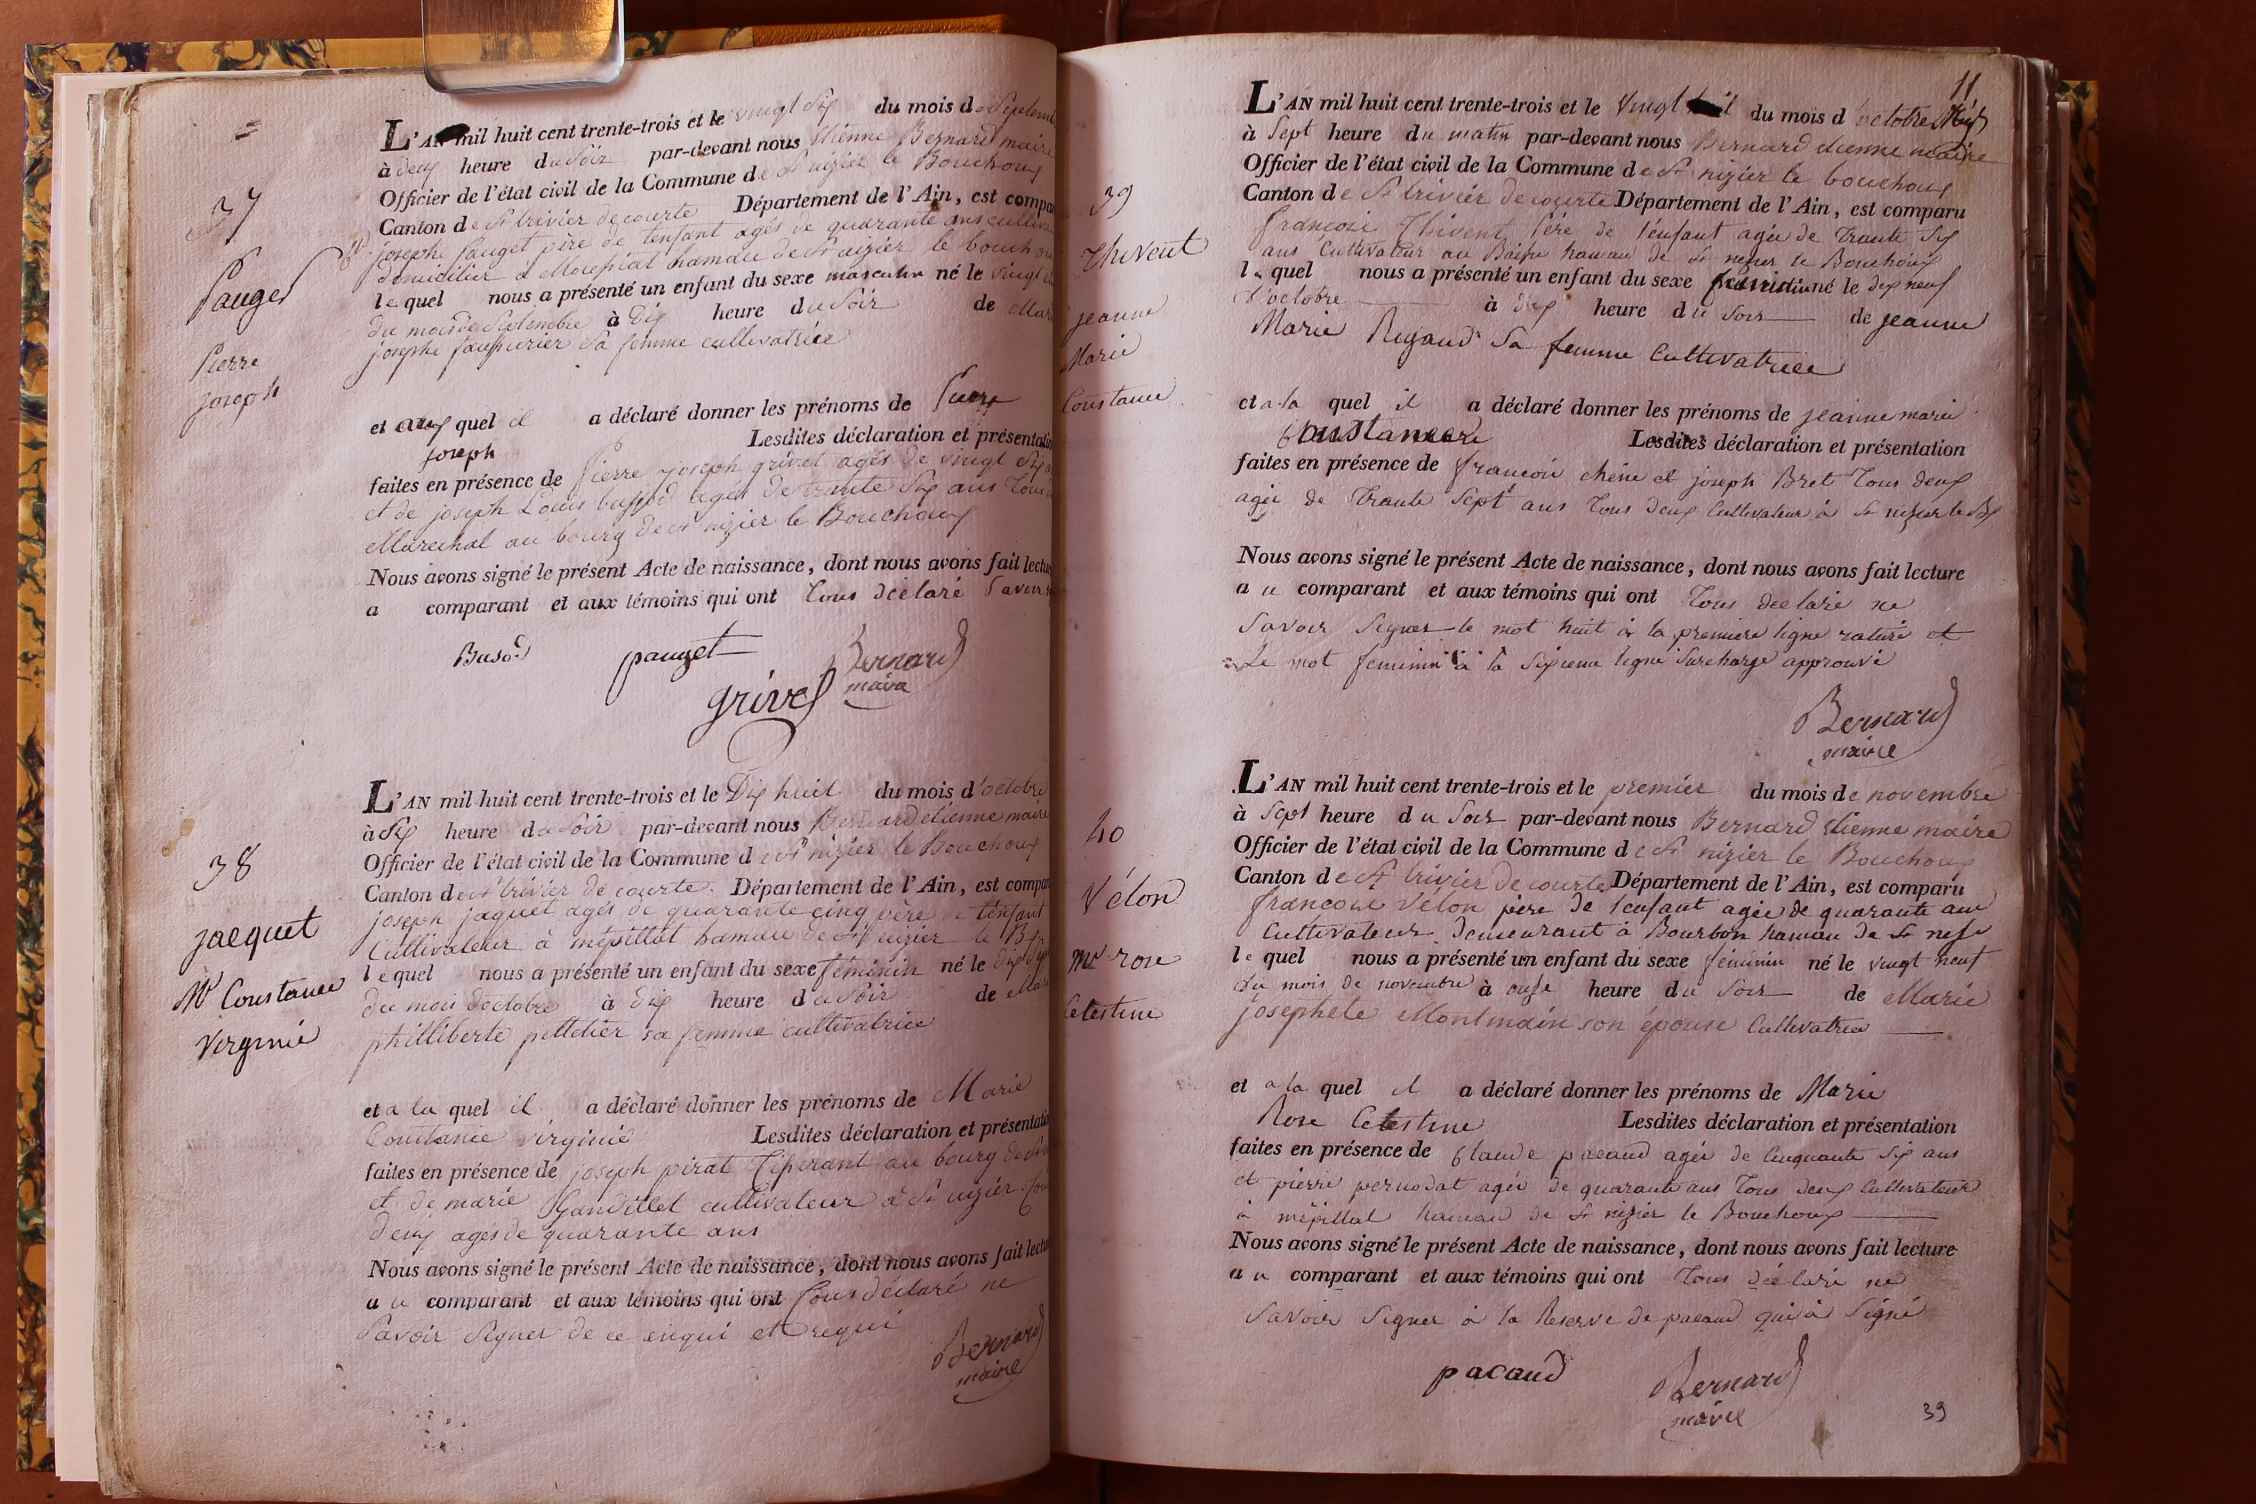 37
Pauget
Pierre
joseph
L'AN mil huit cent trente-trois et le vingt six du mois de Septem
à deux heure du Soir par-devant nous Etienne Bernard maire
Officier de l'état civil de la Commune de St nizier le Bouchoux
Canton de St trivier de courte Département de l'Ain, est compa
joseph Pauget père de l'enfant agés de quarante ans cultiva
domicilier à hamau de St nizier le bouchou
lequel nous a présenté un enfant du sexe masculin né le vingt
du mois de Septembre à dix heure du Soir de Mari
josephe sa femme cultivatrice
et auquel il a déclaré donner les prénoms de Pierre
joseph Lesdites déclaration et présentati
faites en présence de Pierre joseph grivel agés de vingt six
et de joseph Louis agés de trante six ans Tous
Marechal au bourg de St nizier le Bouchoux
Nous avons signé le présent Acte de naissance, dont nous avons fait lectu
a comparant et aux témoins qui ont Tous déclaré Savoir
Busod pauget Bernard
maire
grivel
38
jacquet
Mie Constance
Virginie
L'AN mil huit cent trente-trois et le Dix huit du mois d'octobre
à Six heure du Soir par-devant nous Bernard etienne maire
Officier de l'état civil de la Commune de St nizier le Bouchoux
Canton de St trivier de courte. Département de l'Ain, est compar
joseph jaquet agés de quarante cinq père de l'enfant
Cultivateur à mépillat hamau de St nizier le Bx
lequel nous a présenté un enfant du sexe féminin né le dix
du mois doctobre à dix heure du Soir de Mari
philliberte pelletier sa femme cultivatrice
et a la quel il a déclaré donner les prénoms de Marie
Constance virginie Lesdites déclaration et présentati
faites en présence de joseph pirat Tisserant au bourg de St
et de marie Gandillet cultivateur à St nizier tous
deux agés de quarante ans
Nous avons signé le présent Acte de naissance, dont nous avons fait lectu
au comparant et aux témoins qui ont Tous déclaré ne
Savoir Signer de ce enqui et requi
Bernard
maire
11
39
Thivent
jeanne
Marie
Constance
L'AN mil huit cent trente-trois et le vingt du mois d'octobre
à Sept heure du matin par-devant nous Bernard etienne maire
Officier de l'état civil de la Commune de St nizier le bouchoux
Canton de St trivier de courte Département de l'Ain, est comparu
francois Thivent Père de l'enfant agée de Trante Six
ans Cultivateur au hamau de St nizier le Bouchoux
lequel nous a présenté un enfant du sexe feminin né le dix neuf
d'octobre à dix heure du Soir de jeanne
Marie Rigaud Sa femme Cultivatrice
et a la quel il a déclaré donner les prénoms de jeanne marie
Constance Lesdites déclaration et présentation
faites en présence de francois chêne et joseph Bret Tous deux
agée de Trante Sept ans Tous deux Cultivateur à St nizier le Bx
Nous avons signé le présent Acte de naissance, dont nous avons fait lecture
au comparant et aux témoins qui ont Tous declaré ne
Savoir Signer le mot huit à la premiere ligne raturé et
Le mot feminin à la Sixieme ligne Surcharge approuvé
Bernard
maire
40
Vélon
Mie rose
Celestine
L'AN mil huit cent trente-trois et le premier du mois de novembre
à Sept heure du Soir par-devant nous Bernard etienne maire
Officier de l'état civil de la Commune de St nizier le Bouchoux
Canton de St trivier de courte Département de l'Ain, est comparu
francois Vélon père de l'enfant agée de quarante ans
Cultivateur demeurant à Bourbon hamau de St
lequel nous a présenté un enfant du sexe féminin né le vingt neuf
du mois de novembre à onze heure du Soir de Marie
josephete Montmain son épouse Cultivatrice
et a la quel il a déclaré donner les prénoms de Marie
Rose Celestine Lesdites déclaration et présentation
faites en présence de Claude pacaud agée de Cinquante Six ans
et pierre pernodat agée de quarante ans Tous deux Cultivateur
à mépillat hamau de St nizier le Bouchoux
Nous avons signé le présent Acte de naissance, dont nous avons fait lecture
au comparant et aux témoins qui ont Tous déclaré ne
Savoir Signer à la Reserve de pacaud qui à Signé
pacaud Bernard
maire
39